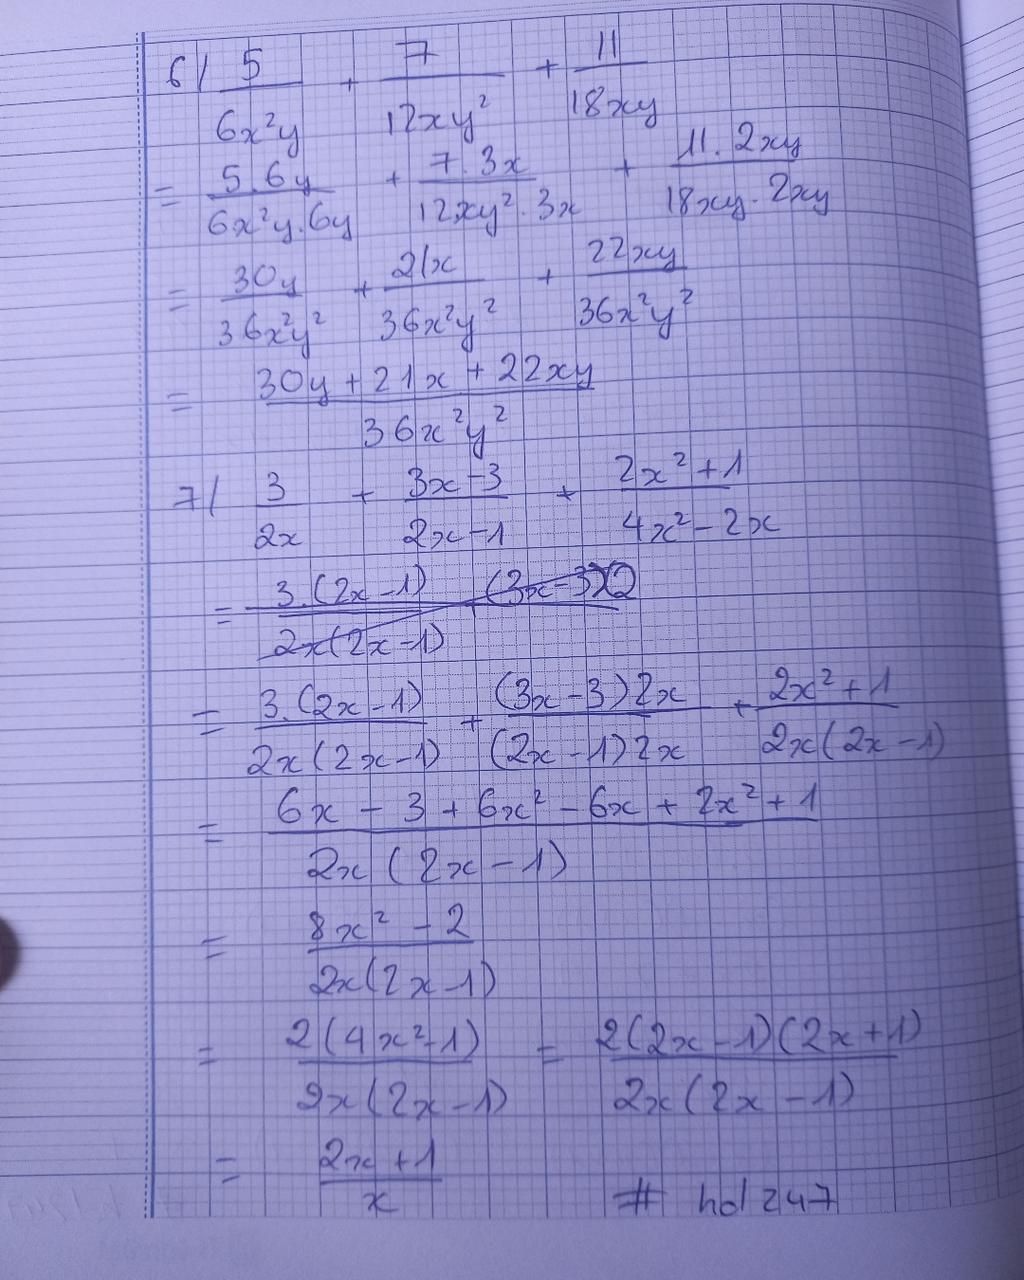 6/ 5/6x²y + 7/12xy² + 11/18xy
= 5.6y/6x²y.6y + 7.3x/12xy².3x + 11.2xy/18xy.2xy
= 30y/36x²y² + 21x/36x²y² + 22xy/36x²y²
= 30y + 21x + 22xy/36x²y²
7/ 3/2x + 3x-3/2x-1 + 2x²+1/4x²-2x
= 3.(2x-1) + (3x-3)2/2x(2x-1)
= 3.(2x-1)/2x(2x-1) + (3x-3)2x/(2x-1)2x + 2x²+1/2x(2x-1)
= 6x - 3 + 6x² - 6x + 2x² + 1/2x(2x-1)
= 8x² - 2/2x(2x-1)
= 2(4x²-1)/2x(2x-1) = 2(2x-1)(2x+1)/2x(2x-1)
= 2x+1/x # hd247